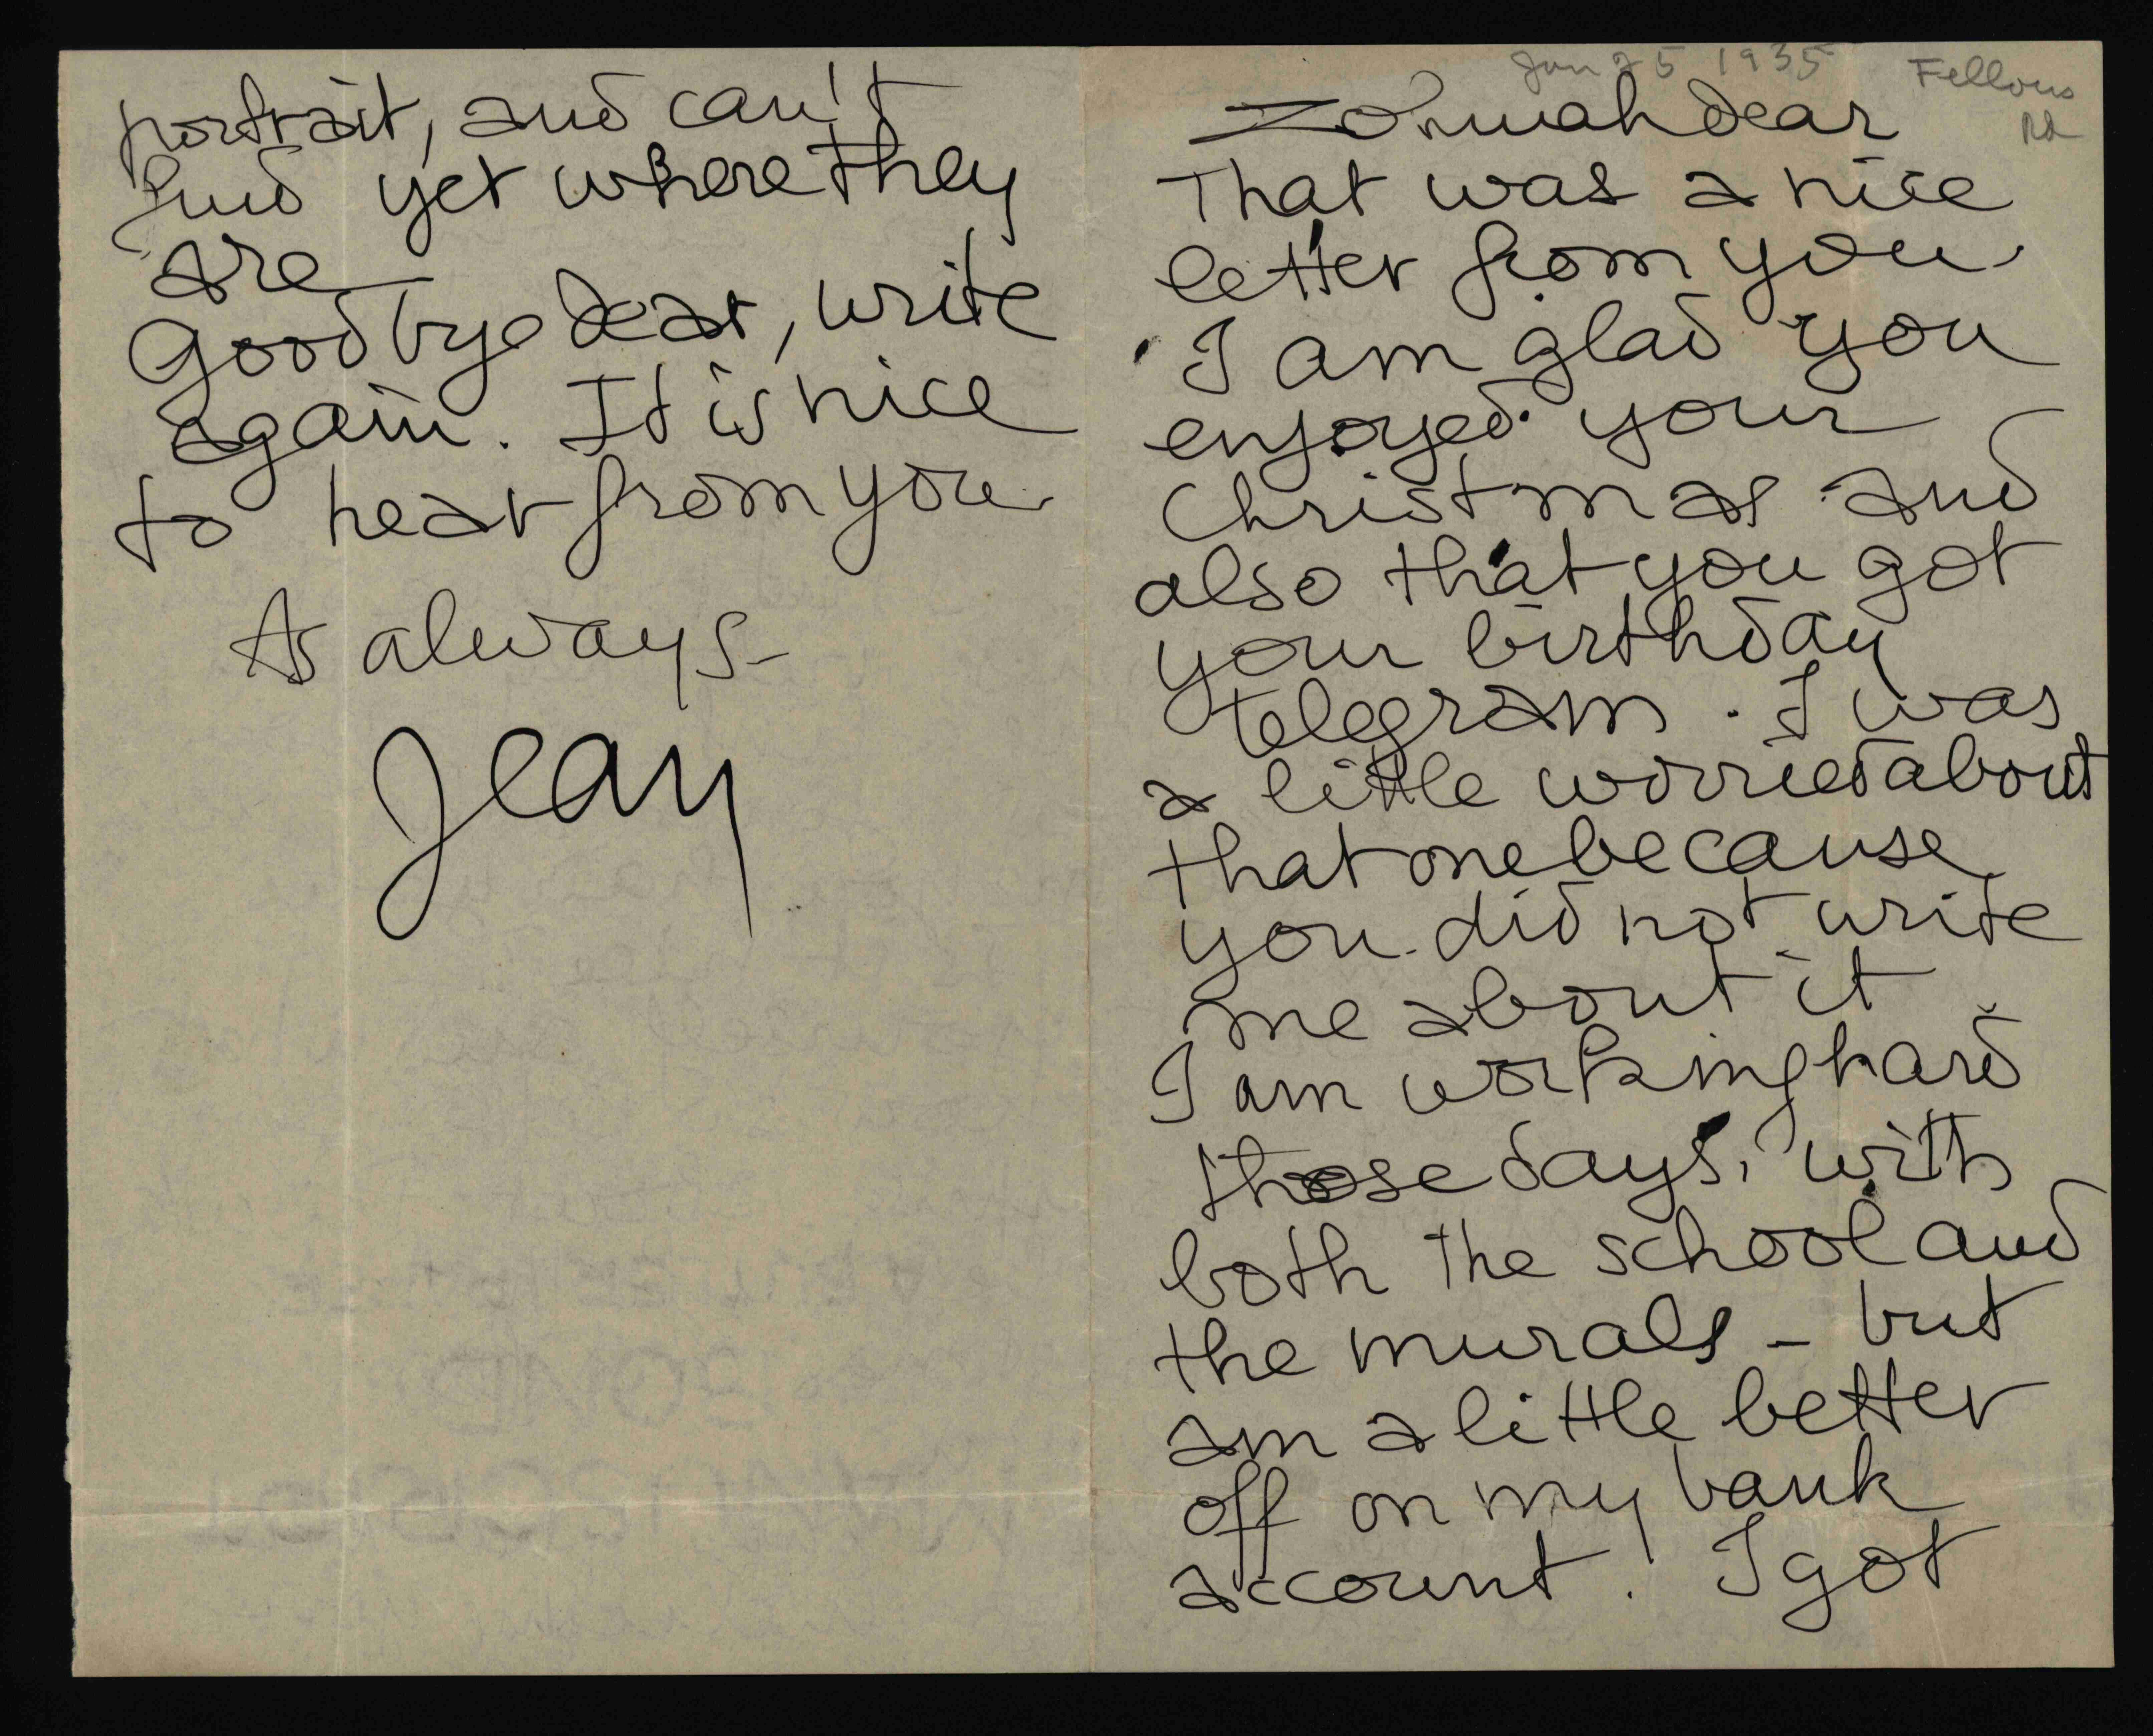 Jan 25 1935
Fellows
Rd
Zohmah dear
That was a nice
letter from you.
I am glad you
enjoyed your
Christmas and
also that you got
your birthday
telegram. I was
a little worried about
that one because
you did not write
me about it
I am working hard
those days, with
both the school and
the murals - but
am a little better
off on my bank
account! I got
portrait, and can't
find yet where they
are
Goodbye dear, write
again. It is nice
to hear from you.
As always-
Jean